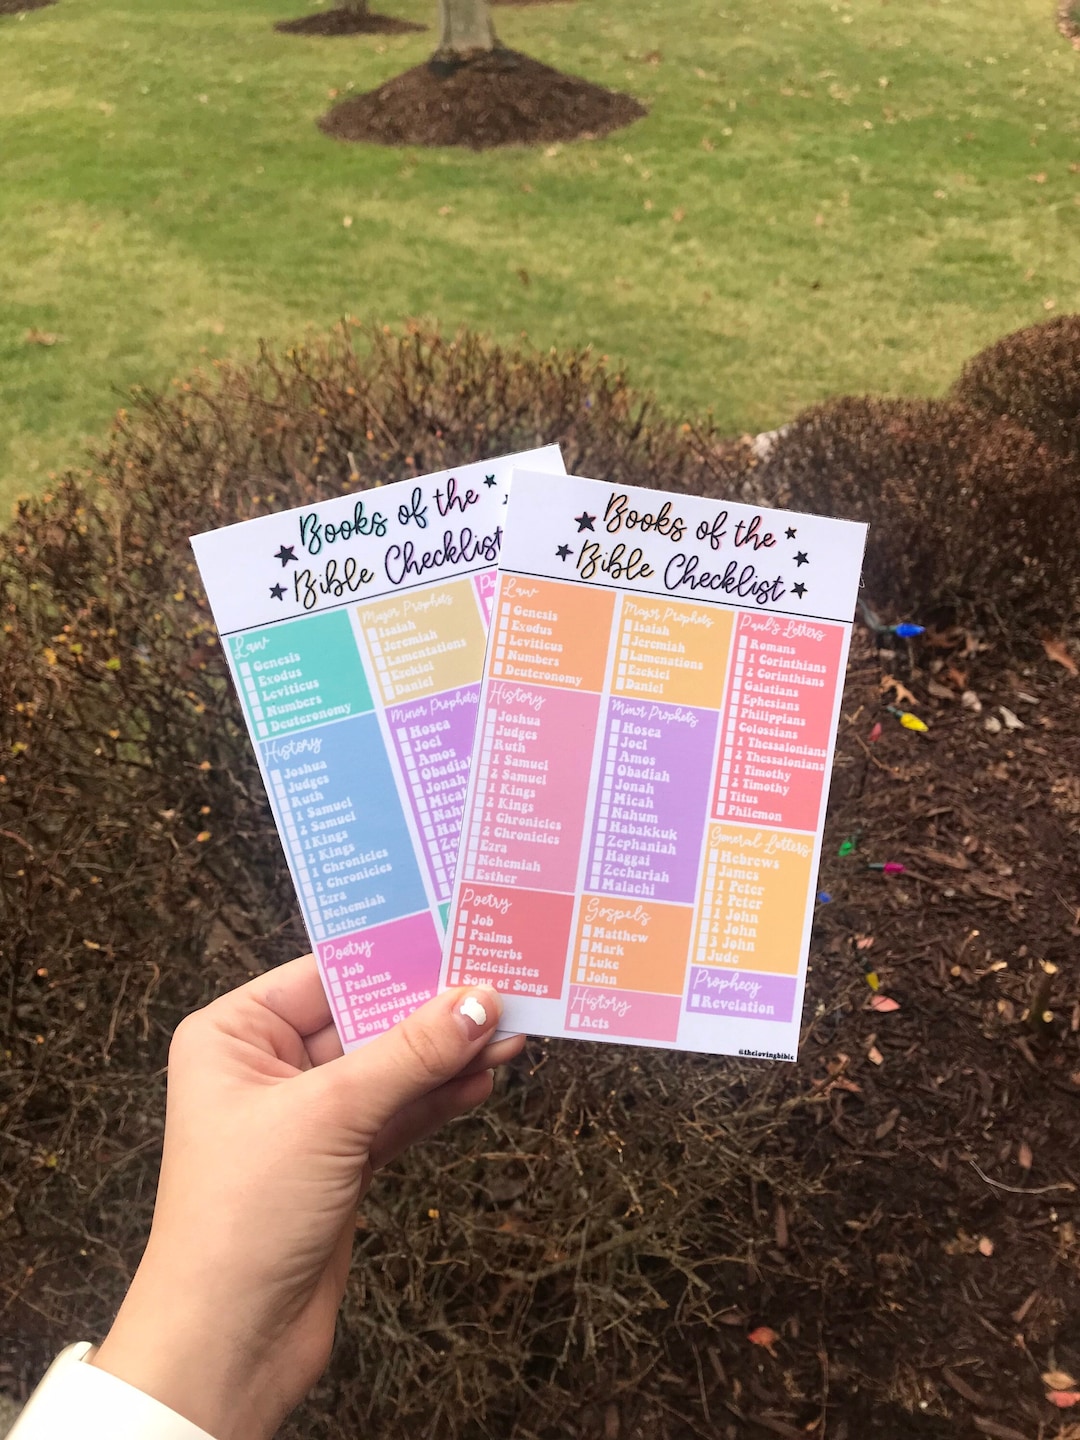 Books of the
Bible Checklist
Law
Genesis
Exodus
Leviticus
Numbers
Deuteronomy
History
Joshua
Judges
Ruth
1 Samuel
2 Samuel
1Kings
2 Kings
1 Chronicles
2 Chronicles
Ezra
Nehemiah
Esther
Poetry
Job
Psalms
Proverbs
Ecclesiastes
Song of
Major Prophets
Isaiah
Jeremiah
Lamentations
Ezekiel
Daniel
Minor Prophets
Hosea
Joel
Amos
Obadiah
Jonah
Micah
Books of the
Bible Checklist
Law
Genesis
Exodus
Leviticus
Numbers
Deuteronomy
History
Joshua
Judges
Ruth
1 Samuel
2 Samuel
1 Kings
2 Kings
1 Chronicles
2 Chronicles
Ezra
Nehemiah
Esther
Poetry
Job
Psalms
Proverbs
Ecclesiastes
Song of Songs
Major Prophets
Isaiah
Jeremiah
Lamenations
Ezekiel
Daniel
Minor Prophets
Hosea
Joel
Amos
Obadiah
Jonah
Micah
Nahum
Habakkuk
Zephaniah
Haggai
Zechariah
Malachi
Gospels
Matthew
Mark
Luke
John
History
Acts
Paul's Letters
Romans
1 Corinthians
2 Corinthians
Galatians
Ephesians
Philippians
Colossians
1 Thessalonians
2 Thessalonians
1 Timothy
2 Timothy
Titus
Philemon
General Letters
Hebrews
James
1 Peter
2 Peter
1 John
2 John
3 John
Jude
Prophecy
Revelation
@thelovingbible